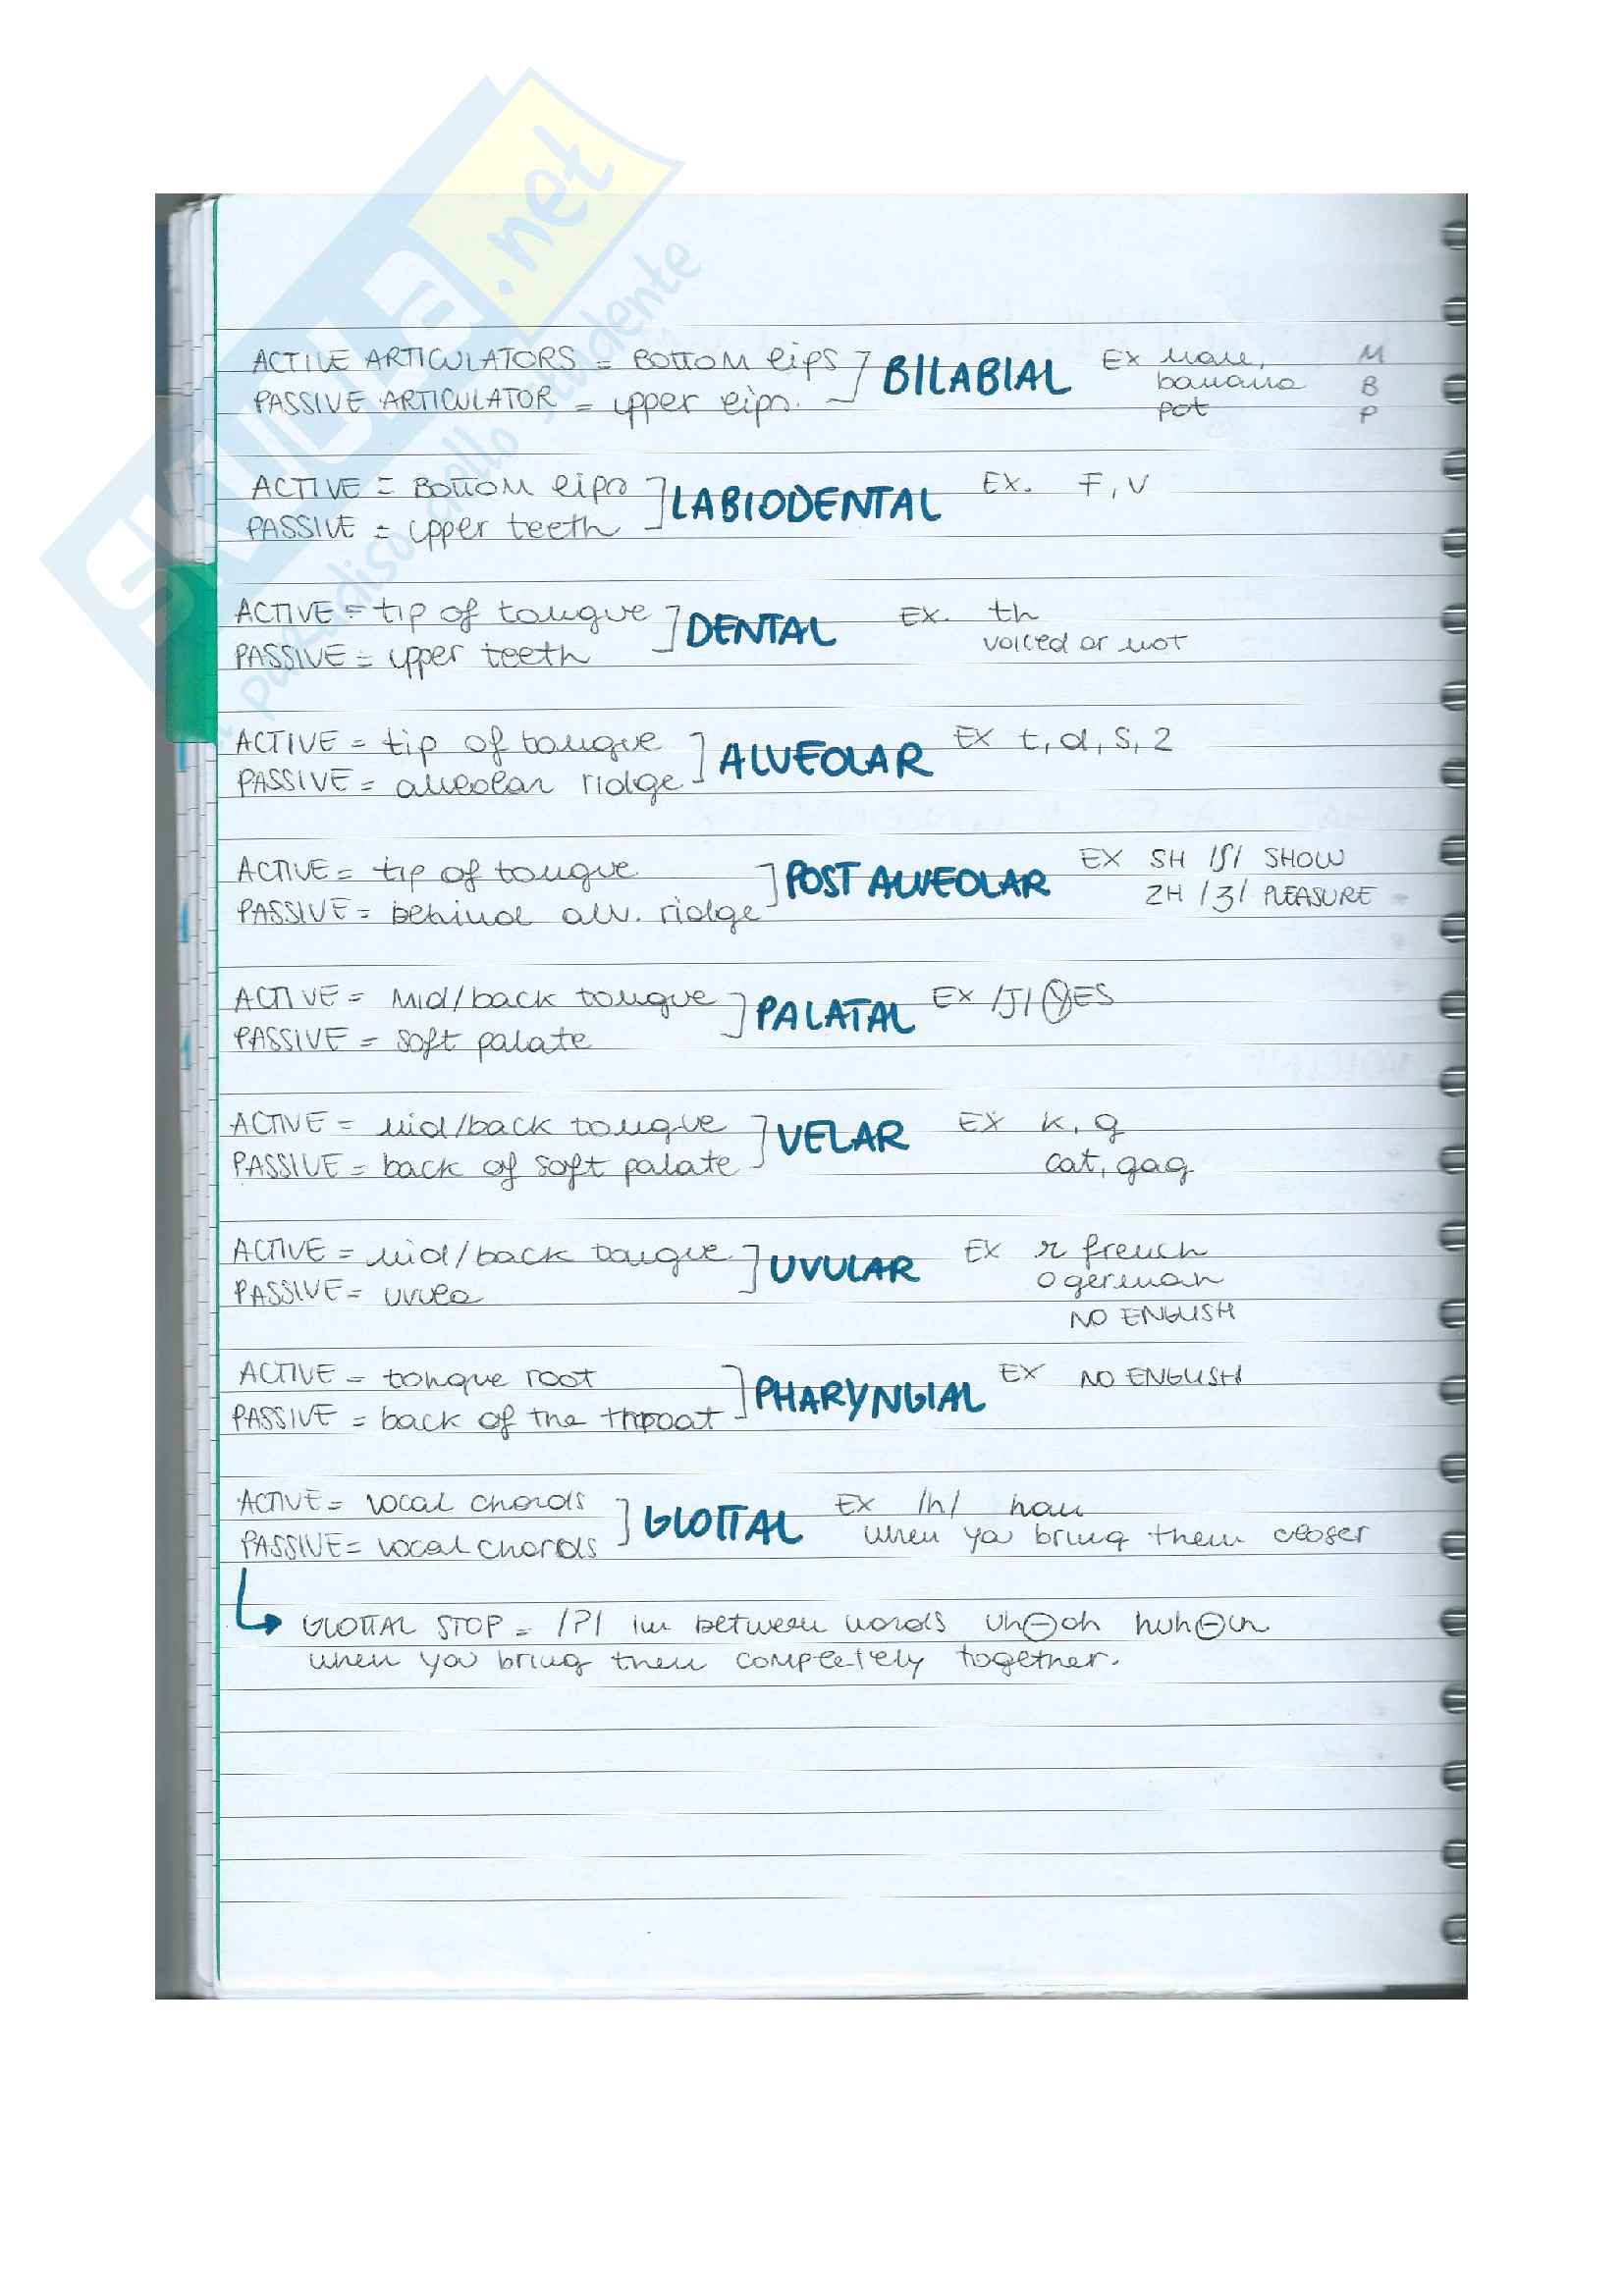 SKUOLA.net
il paradiso dello studente
ACTIVE ARTICULATORS = BOTTOM lips ] BILABIAL EX mom, M
banana B
PASSIVE ARTICULATOR = upper lips.
pot P
ACTIVE = BOTTOM lips ] LABIODENTAL EX. F, V
PASSIVE = upper teeth
ACTIVE = tip of tongue ] DENTAL EX. th
PASSIVE = upper teeth voiced or not
ACTIVE = tip of tongue ] ALVEOLAR EX t, d, s, z
PASSIVE = alveolar ridge
ACTIVE = tip of tongue ] POST ALVEOLAR EX SH /ʃ/ SHOW
PASSIVE = behind alv. ridge ZH /ʒ/ PLEASURE
ACTIVE = Mid/back tongue ] PALATAL EX /J/ YES
PASSIVE = soft palate
ACTIVE = mid/back tongue ] VELAR EX k, g
PASSIVE = back of soft palate cat, gag
ACTIVE = mid/back tongue ] UVULAR EX r french
o german
PASSIVE = uvula
NO ENGLISH
ACTIVE = tongue root ] PHARYNGIAL EX NO ENGLISH
PASSIVE = back of the throat
ACTIVE = vocal chords ] GLOTTAL EX /h/
PASSIVE = vocal chords when you bring them closer
GLOTTAL STOP = /ʔ/ in between words uh-oh huh-uh
when you bring them completely together.